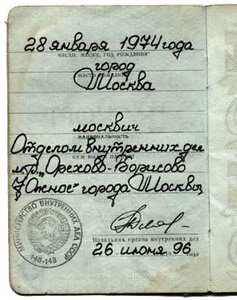 28 января 1974 года
число, месяц, год рождения
город
место рождения
Москва
москвич
национальность
Отделом внутренних дел
кем выдан паспорт
мкр. „Орехово-Борисово
Южное" города Москвы
МИНИСТЕРСТВО ВНУТРЕННИХ ДЕЛ СССР
148-143
Начальник органа внутренних дел
26 июня 96 года